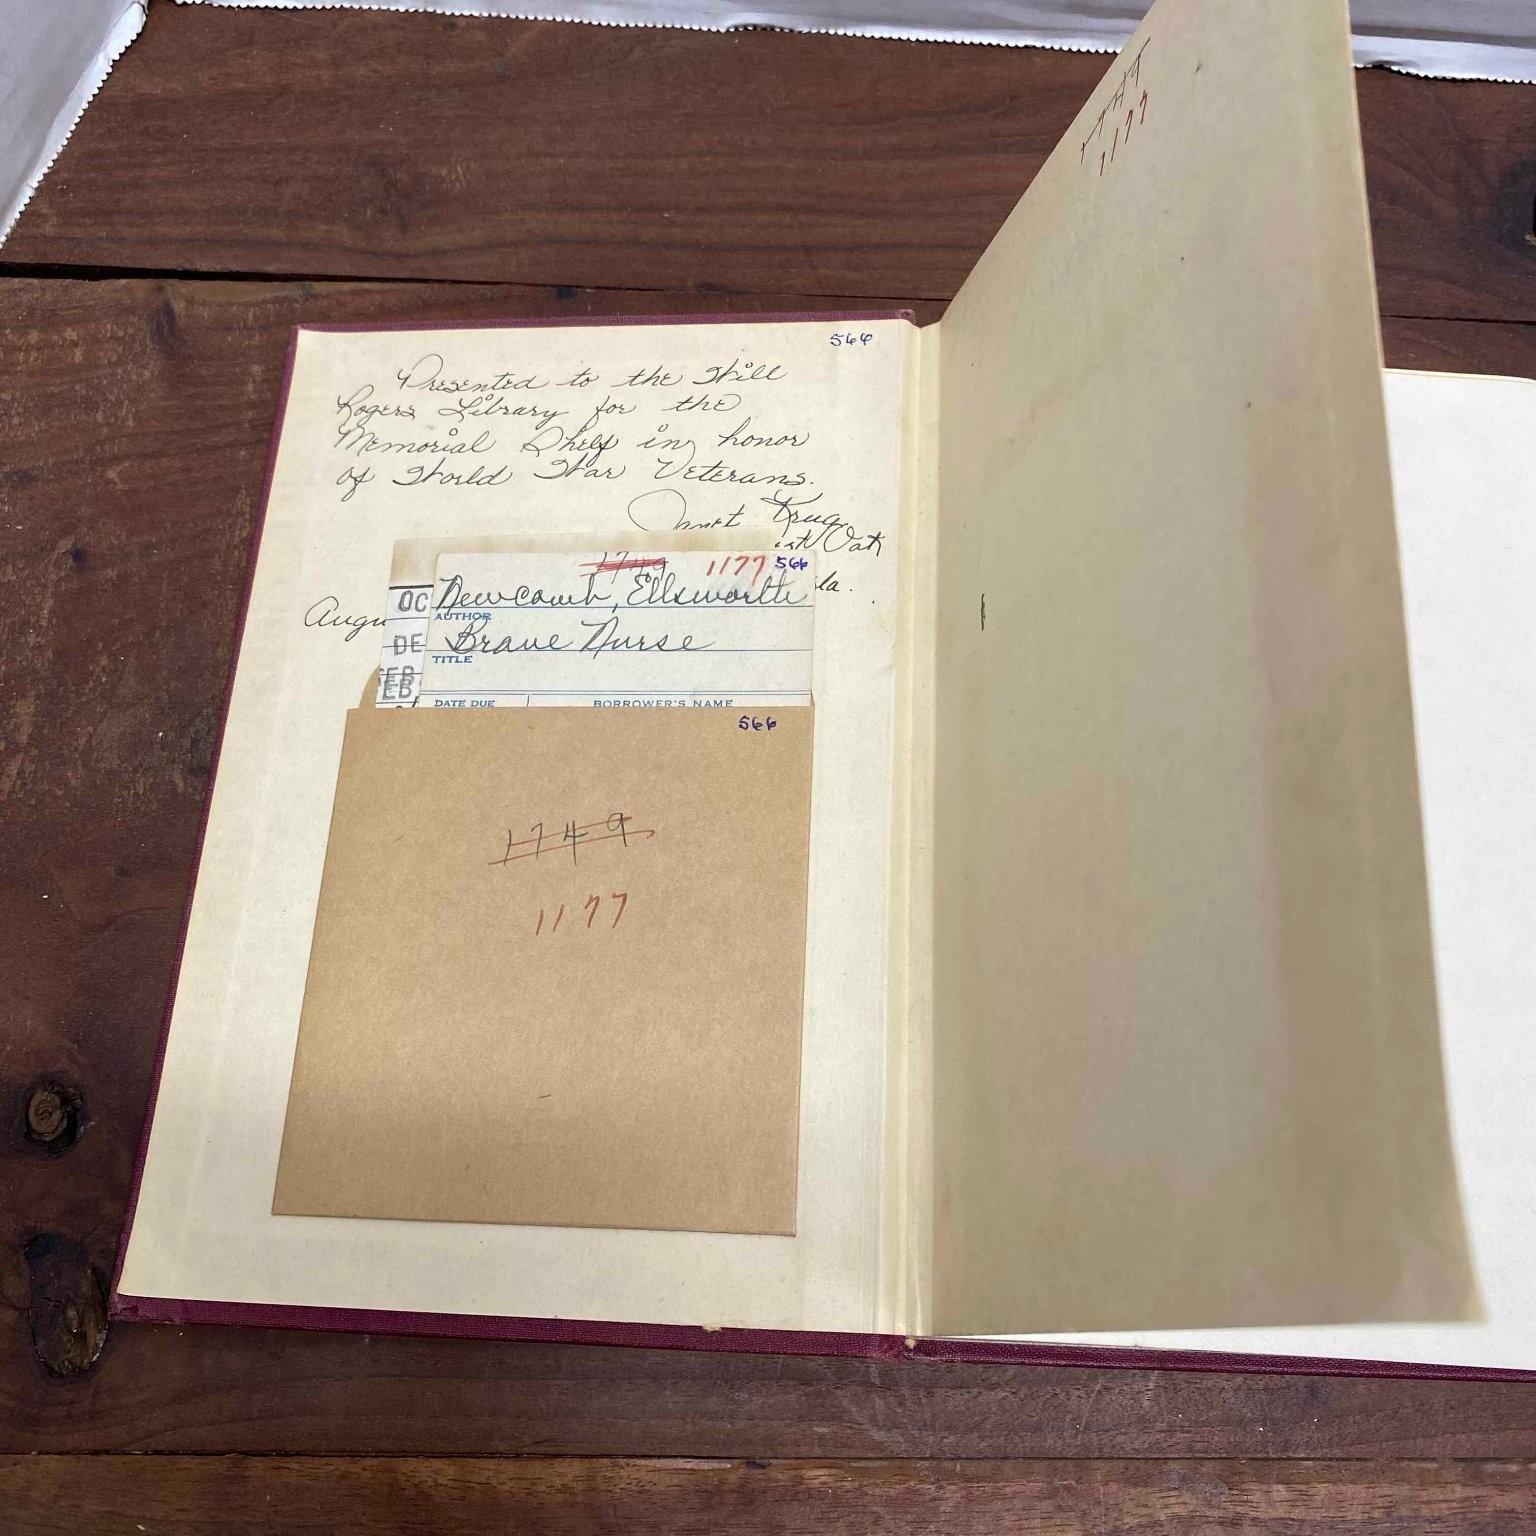 566
Presented to the Will
Rogers Library for the
Memorial Shelf in honor
of World War Veterans.
Janet Krug
Oak
la.
Augu
1749 1177 566
Newcomb, Ellsworth
AUTHOR
Brave Nurse
TITLE
DATE DUE BORROWER'S NAME
OC
DE
FEB
FEB
566
1749
1177
1749
1177